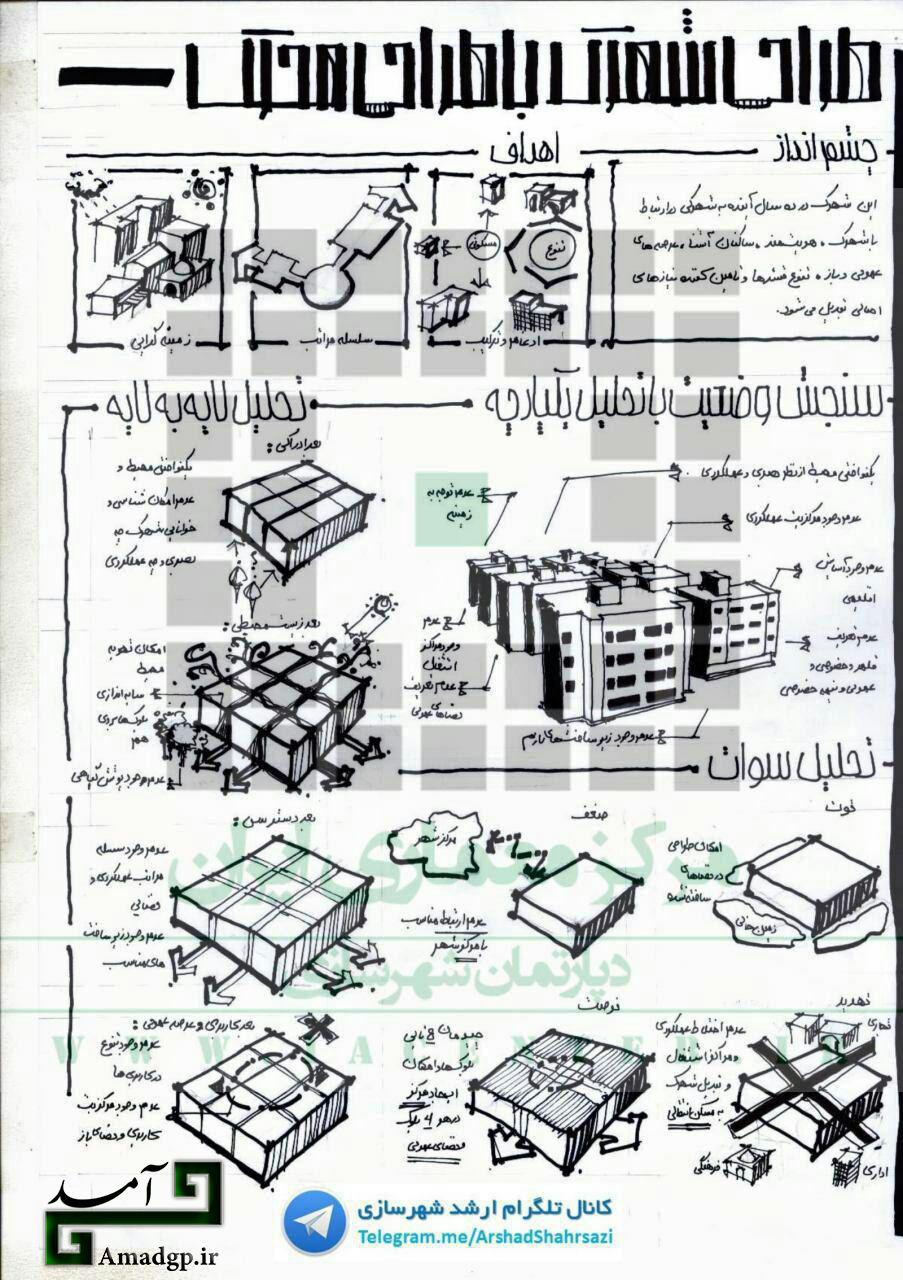 طراحی شهرک با طراحی محرک
چشم انداز
اهداف
این شهرک در ده سال آینده به شهرکی در ارتباط
با شهرک، هویتمند، ساکنان آشنا، عرصه های
عمومی و باز، تنوع قشرها و تامین کننده نیازهای
اهالی تبدیل می شود.
تنوع
مسکونی
ادغام و ترکیب
سلسله مراتب
زمینه گرایی
سنجش وضعیت با تحلیل یکپارچه
یکنواختی محیط از نظر بصری و عملکردی
عدم توجه به
زمینه
عدم وجود مرکزیت عملکردی
عدم وجود آسایش
اقلیمی
عدم تعریف
قلمرو خصوصی و
عمومی و نیمه خصوصی
عدم
وجود مراکز
اشتغال
عدم تعریف
فضاهای عمومی
عدم وجود زیرساخت های لازم
تحلیل لایه به لایه
بعد ادراکی:
یکنواختی محیط و
عدم امکان شناسایی و
خوانایی شهرک چه
بصری و چه عملکردی
بعد زیست محیطی:
امکان تهویه
محیط
سایه اندازی
بلوک ها بر روی
هم
عدم وجود پوشش گیاهی
بعد دسترسی:
عدم وجود سلسله
مراتب عملکردی و
فضایی
عدم وجود زیرساخت
های مناسب
بعد کاربری و عرصه عمومی:
عدم وجود تنوع
در کاربری ها
عدم وجود مرکزیت
کاربری و فضای باز
تحلیل سوات
قوت
امکان طراحی
در فضاهای
ساخته نشده
زمین خالی
ضعف
مرکز شهر
عدم ارتباط مناسب
با مرکز شهر
فرصت
چیدمان 8 تایی
بلوک ها و امکان
ایجاد مرکز
در هر 4 بلوک
فضای عمومی
تهدید
عدم اختلاط عملکردی
و مراکز اشتغال
و تبدیل شهرک
به مسکن انتقالی
تجاری
فرهنگی
اداری
مرکز معماری ایران
دپارتمان شهرسازی
آمد
Amadgp.ir
کانال تلگرام ارشد شهرسازی
Telegram.me/ArshadShahrsazi